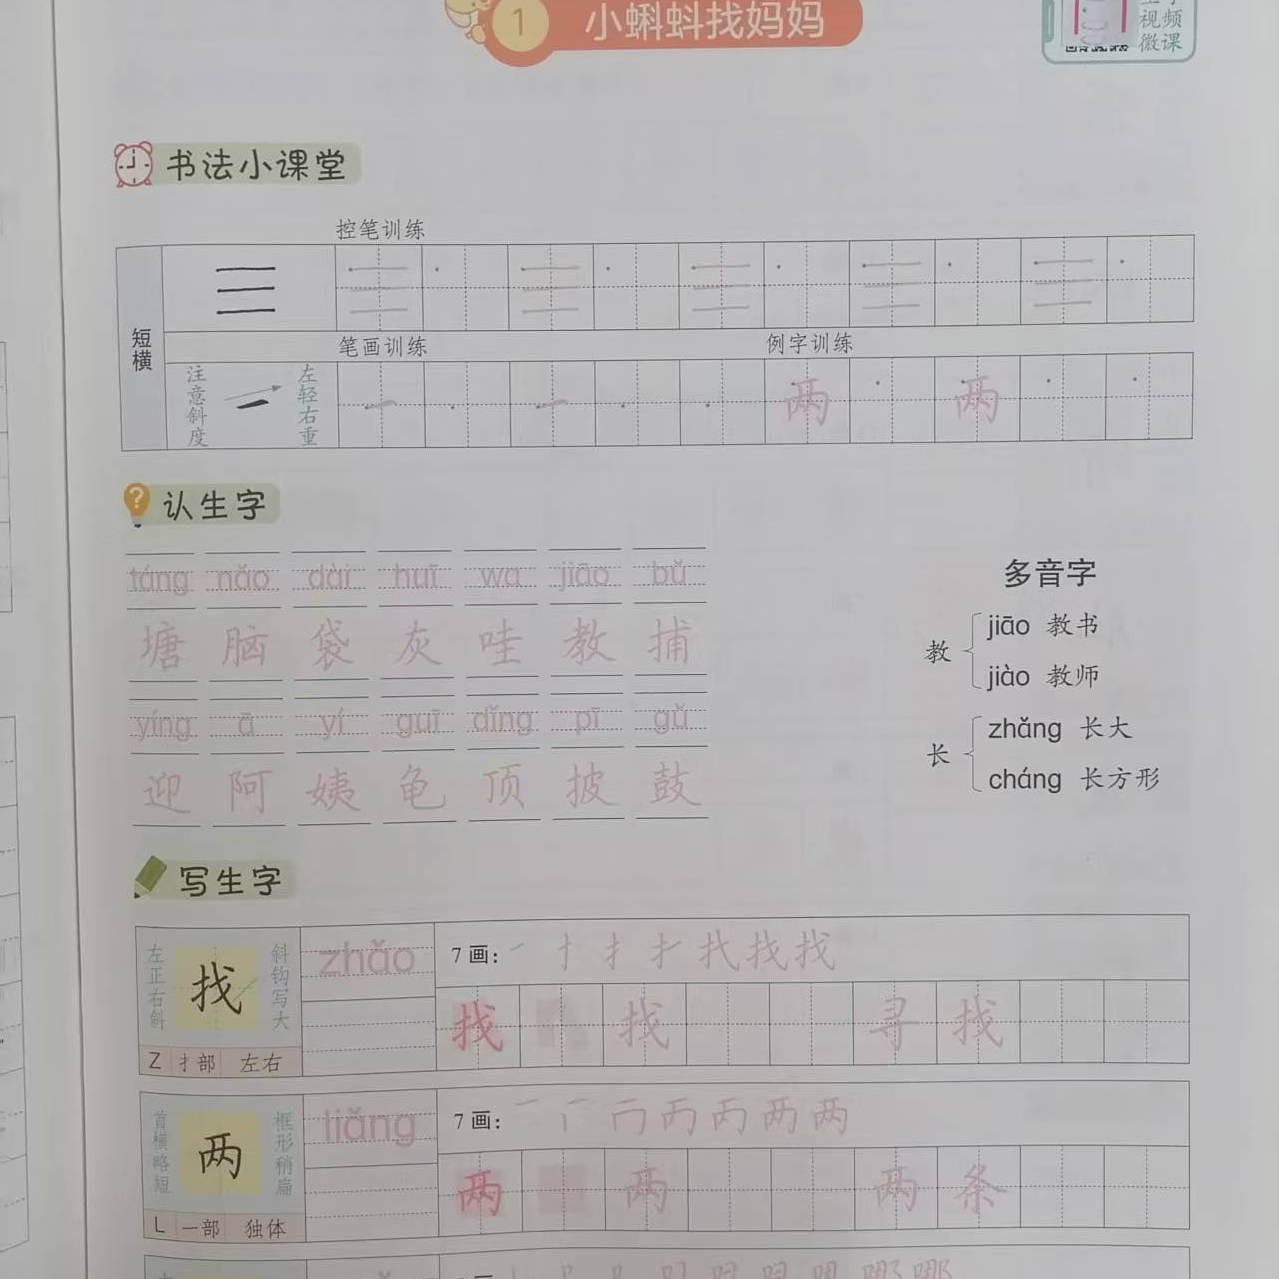 1 小蝌蚪找妈妈
视频
微课
书法小课堂
控笔训练
短横
笔画训练 例字训练
注意斜度
左轻右重
两 两
认生字
táng nǎo dài huī wa jiāo bǔ
塘 脑 袋 灰 哇 教 捕
yíng ā yí guī dǐng pī gǔ
迎 阿 姨 龟 顶 披 鼓
多音字
教
jiāo 教书
jiào 教师
长
zhǎng 长大
cháng 长方形
写生字
左正右斜
找
斜钩写大
zhǎo
7画: 一 扌 找 找
找 找 寻 找
Z 扌部 左右
首横略短
两
框形稍扁
liǎng
7画: 一 丆 两 两
两 两 两 条
L 一部 独体